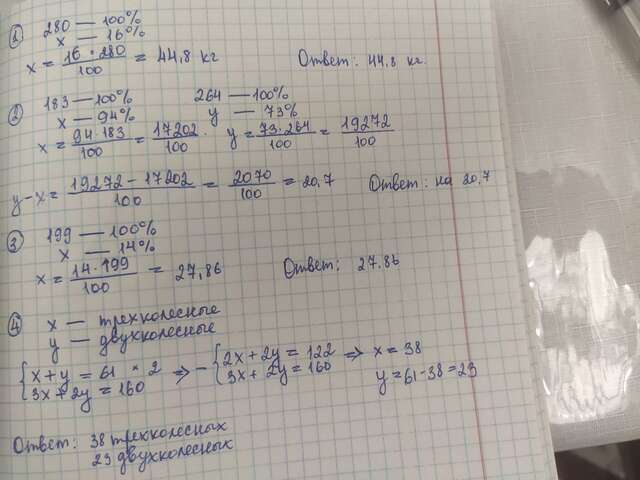 ① 280 — 100%
x — 16%
x = 16·280/100 = 44,8 кг Ответ: 44,8 кг.
② 183 — 100% 264 — 100%
x — 94% y — 73%
x = 94·183/100 = 17202/100 . y = 73·264/100 = 19272/100
y-x = 19272-17202/100 = 2070/100 = 20,7 Ответ: на 20,7
③ 199 — 100%
x — 14%
x = 14·199/100 = 27,86 Ответ: 27,86
④ x — трехколесные
y — двухколесные
{x+y=61 *2 => -{2x+2y=122 => x=38
{3x+2y=160 {3x+2y=160 y=61-38=23
Ответ: 38 трехколесных
23 двухколесных